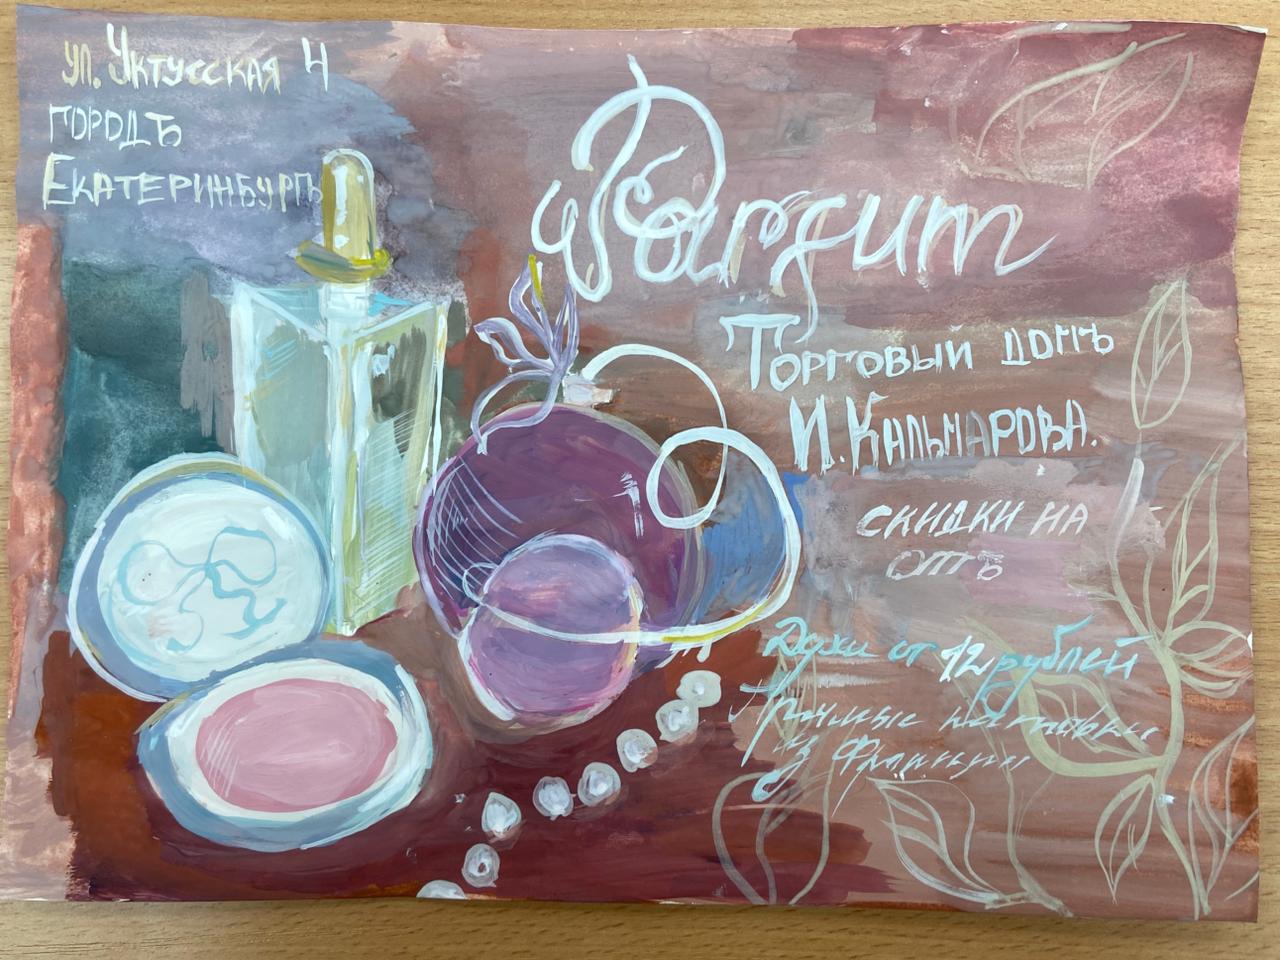 ул. Уктусская 4
городъ
Екатеринбургъ
Parfum
Торговый домъ
И. Кальмарова.
скидки на
отъ
Духи от 12 рублей
Прямые поставки
из Франции